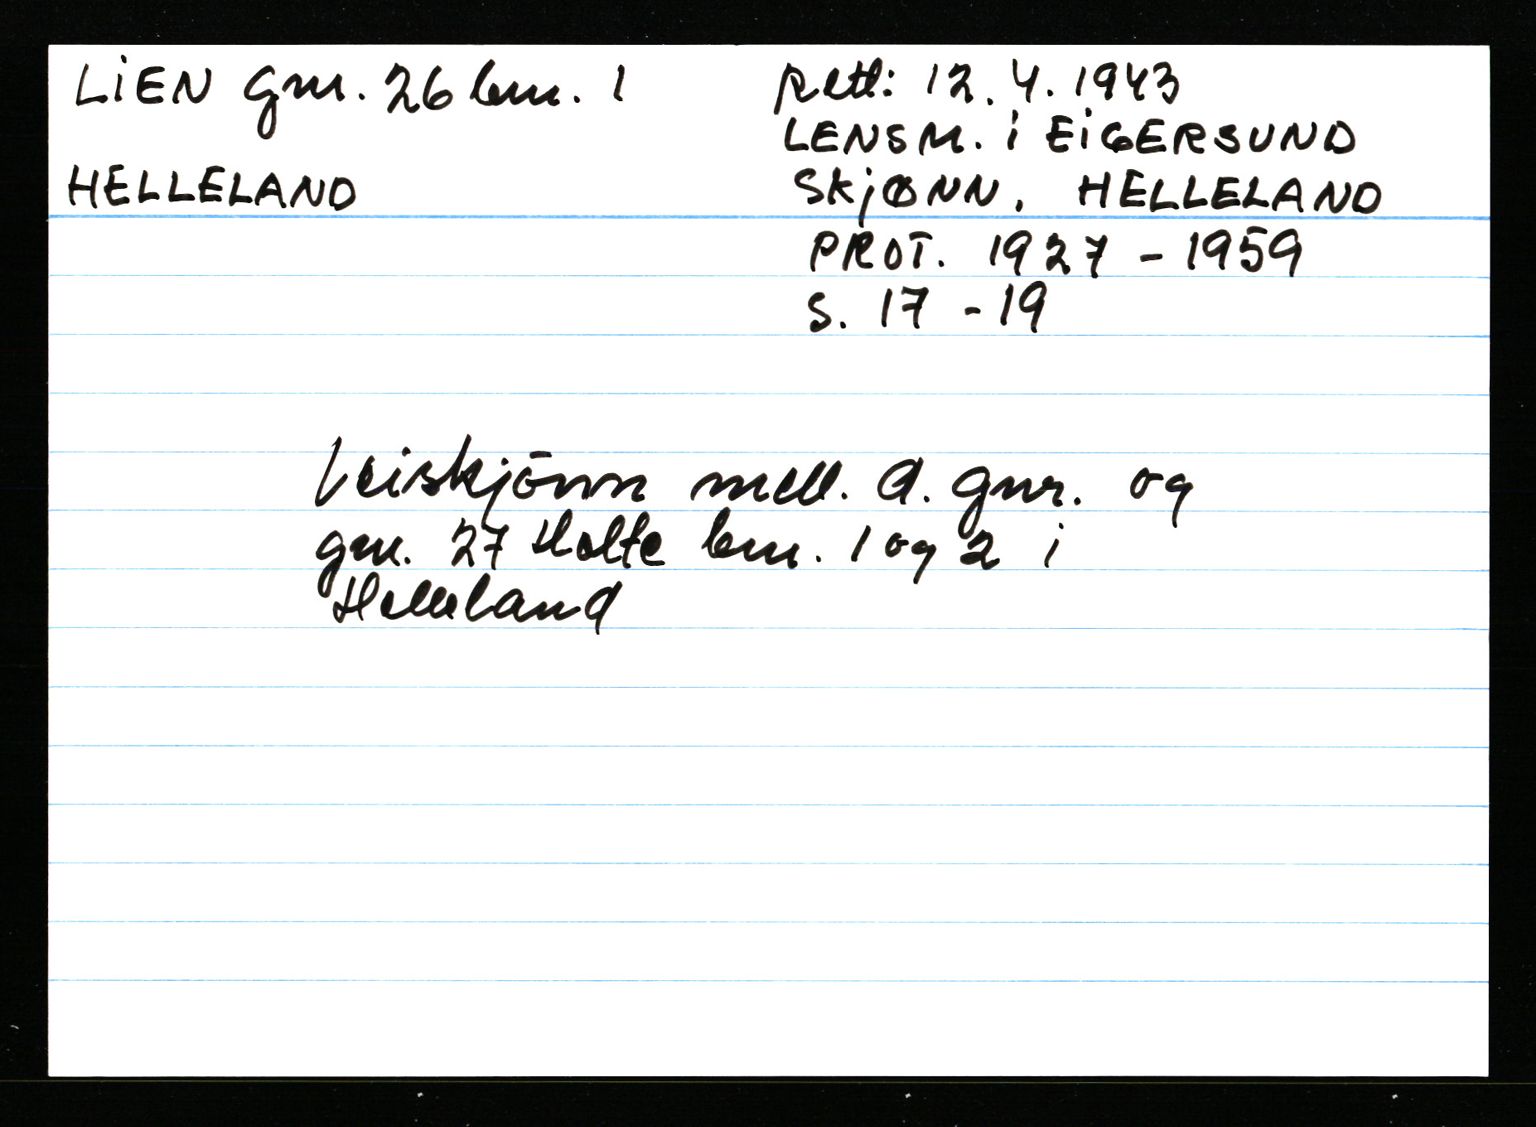 LIEN gnr. 26 bnr. 1
HELLELAND
Rettl: 12. 4. 1943
LENSM. i EIGERSUND
SKJØNN, HELLELAND
PROT. 1927 - 1959
S. 17 - 19
Veiskjönn mell. d. gnr. og
gnr. 27 Holte bnr. 1 og 2 i
Helleland